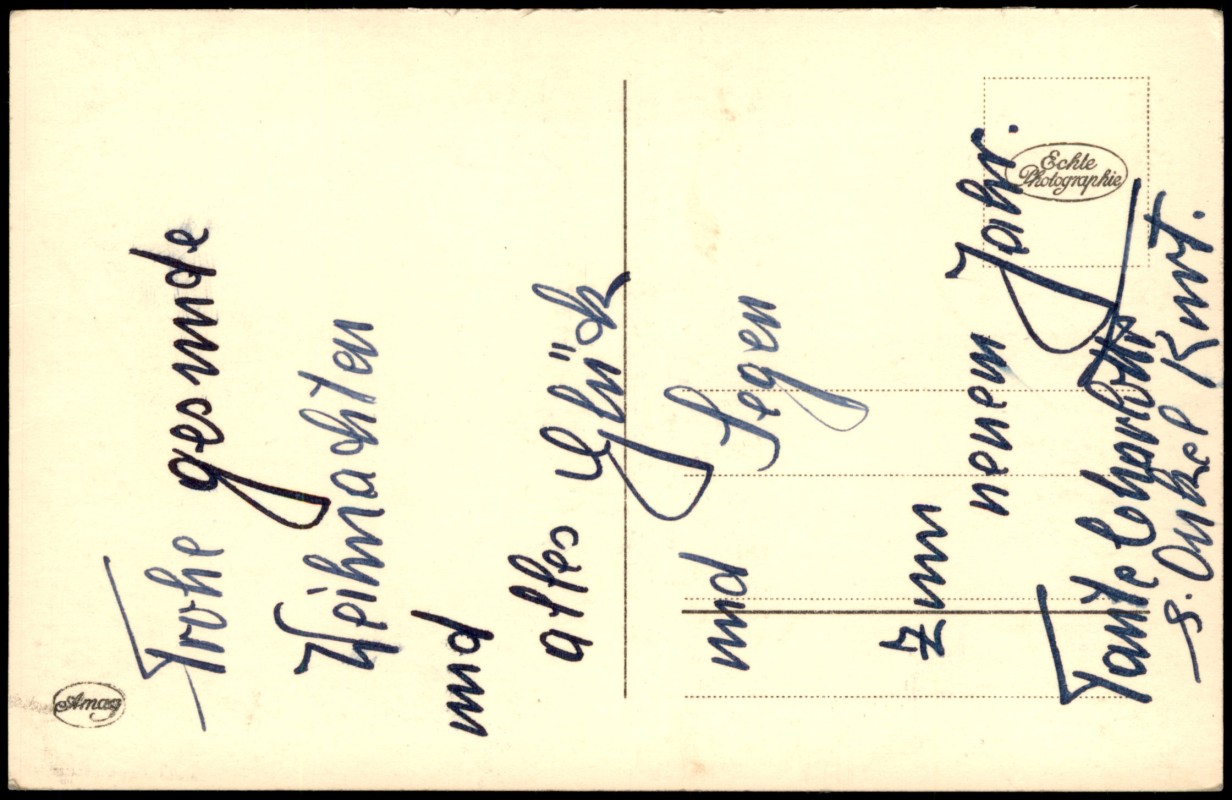 Frohe gesunde
Weihnachten
und
alles Glück
und Segen
zum
neuen Jahr.
Tante Charlotte
u. Onkel Kurt.
Echte
Photographie
Amag